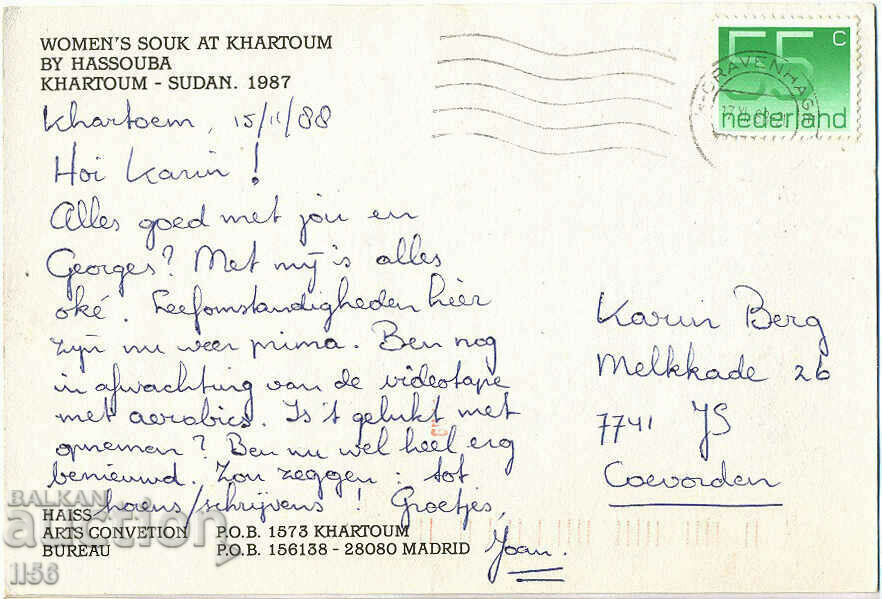 WOMEN'S SOUK AT KHARTOUM
BY HASSOUBA
KHARTOUM - SUDAN. 1987
55 c
nederland
'S-GRAVENHAGE
Khartoem, 15/11/88
Hoi Karin!
Alles goed met jou en
Georges? Met mij is alles
oké. Leefomstandigheden hier
zijn nu weer prima. Ben nog
in afwachting van de videotape
met aerobics. Is 't gelukt met
opnemen? Ben nu wel heel erg
benieuwd. Zou zeggen: tot
horens/schrijvens! Groetjes,
Joan.
Karin Berg
Melkkade 26
7741 JS
Coevorden
HAISS
ARTS CONVETION P.O.B. 1573 KHARTOUM
BUREAU P.O.B. 156138 - 28080 MADRID
BALKAN
auction
1156